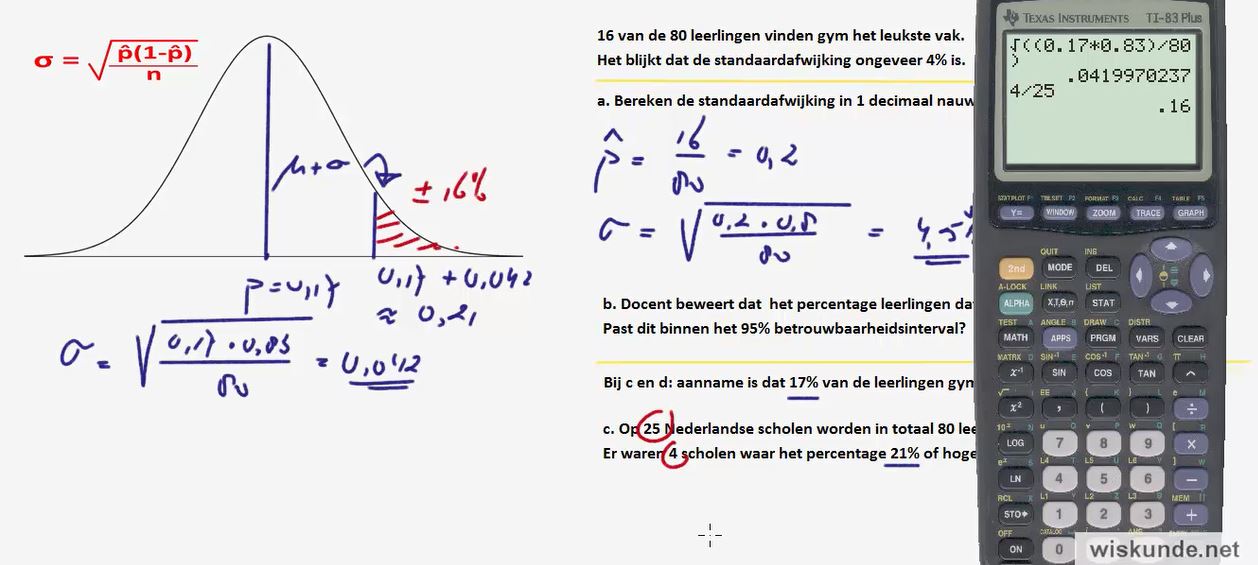 σ = √p̂(1-p̂)/n
μ+σ
± 16%
p=0,17
0,17 + 0,042
≈ 0,21
σ = √0,17 · 0,83/80 = 0,042
16 van de 80 leerlingen vinden gym het leukste vak.
Het blijkt dat de standaardafwijking ongeveer 4% is.
a. Bereken de standaardafwijking in 1 decimaal nauw
p̂ = 16/80 = 0,2
σ = √0,2 · 0,8/80 = 4,5%
b. Docent beweert dat het percentage leerlingen da
Past dit binnen het 95% betrouwbaarheidsinterval?
Bij c en d: aanname is dat 17% van de leerlingen gym
c. Op 25 Nederlandse scholen worden in totaal 80 lee
Er waren 4 scholen waar het percentage 21% of hoge
TEXAS INSTRUMENTS TI-83 Plus
√((0.17*0.83)/80
)
.0419970237
4/25
.16
STAT PLOT F1 TBLSET F2 FORMAT F3 CALC F4 TABLE F5
Y= WINDOW ZOOM TRACE GRAPH
QUIT INS
2nd MODE DEL
A-LOCK LINK LIST
ALPHA X,T,θ,n STAT
TEST A ANGLE B DRAW C DISTR
MATH APPS PRGM VARS CLEAR
MATRX D SIN⁻¹ E COS⁻¹ F TAN⁻¹ G π H
x⁻¹ SIN COS TAN ^
√ I EE J { K } L e M
x² , ( ) ÷
10ˣ N u O v P w Q [ R
LOG 7 8 9 ×
eˣ S L4 T L5 U L6 V ] W
LN 4 5 6 −
RCL X L1 Y L2 Z L3 θ MEM "
STO▸ 1 2 3 +
OFF CATALOG
ON 0
wiskunde.net